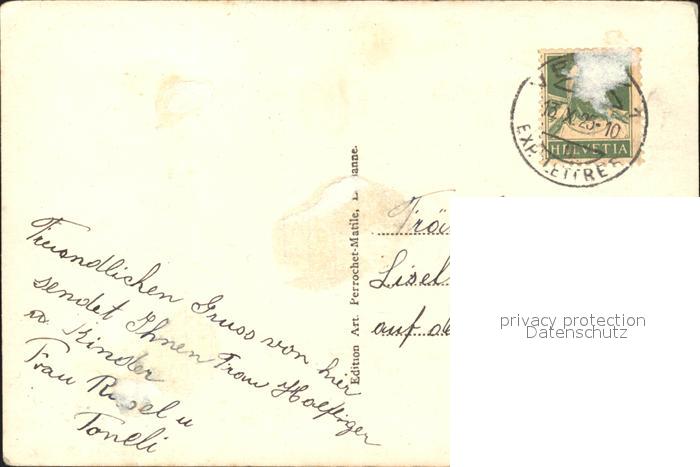 VEVEY
13.IX.25-10
EXP. LETTRES
HELVETIA
Edition Art. Perrochet-Matile, L anne.
Freundlichen Gruss von hier
sendet Ihnen Frau Haefliger
u. Kinder
Frau R sel u
Toneli
Fräu
Lisel
auf de
privacy protection
Datenschutz